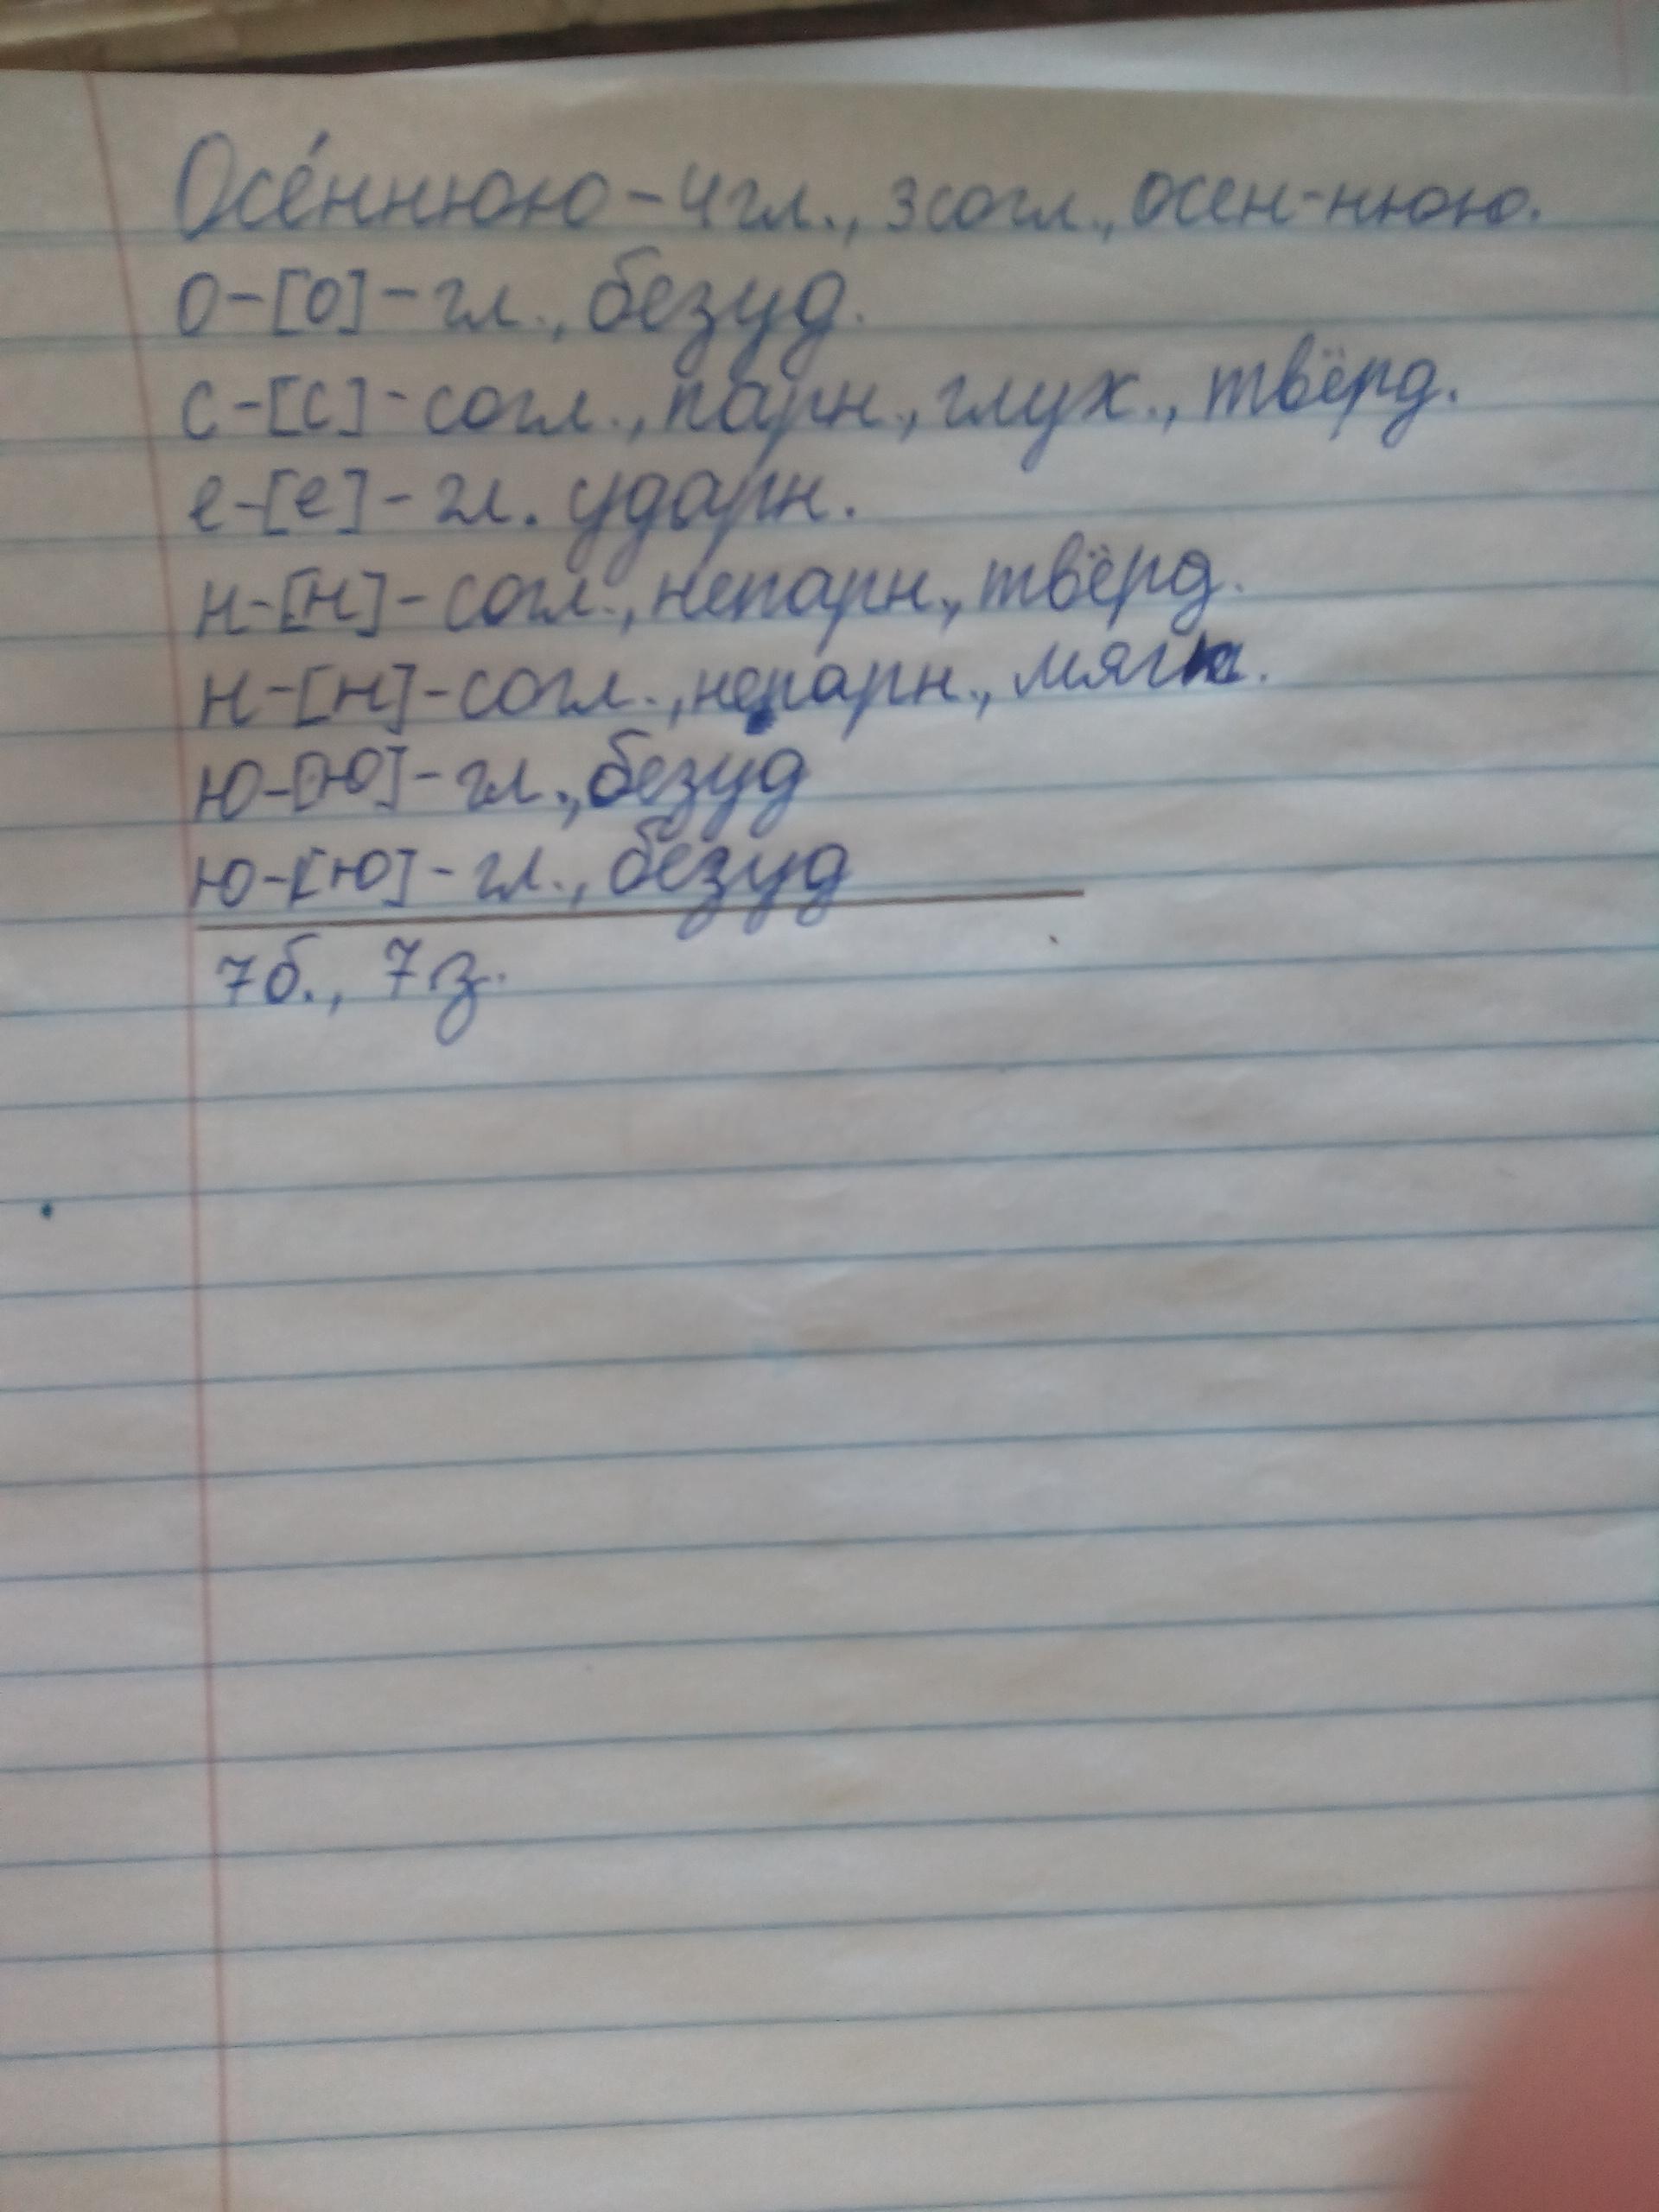 Осе́ннюю - 4 гл., 3 согл., осен-нюю.
о - [о] - гл., безуд.
с - [с] - согл., парн., глух., твёрд.
е - [е] - гл. ударн.
н - [н] - согл., непарн., твёрд.
н - [н] - согл., непарн., мягк.
ю - [ю] - гл., безуд
ю - [ю] - гл., безуд
7 б., 7 з.